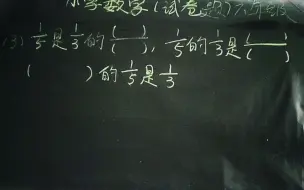 小学数学(试卷题)六年级
(3) 1/5是1/3的( )/( ), 1/5的1/3是( )/( )
( )的1/5是1/3